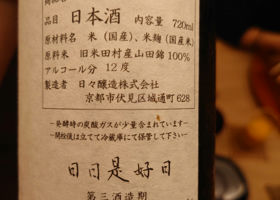 品目 日本酒 内容量 720ml
原材料名 米(国産)、米麹(国産米)
原料米 旧米田村産山田錦100%
アルコール分 12度
製造者 日々醸造株式会社
京都市伏見区城通町628
—発酵時の炭酸ガスが少量含まれています—
—開栓後は立てて冷蔵庫にて保管して下さい—
日日是好日
第三酒造期